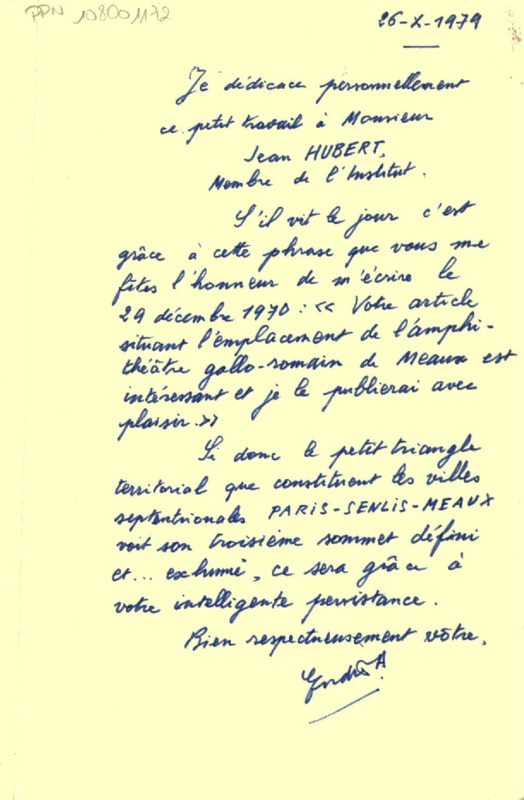 PPN 108001172
26-X-1979
Je dédicace personnellement
ce petit travail à Monsieur
Jean HUBERT,
Membre de l'Institut.
S'il vit le jour c'est
grâce à cette phrase que vous me
fîtes l'honneur de m'écrire le
29 décembre 1970 : << Votre article
situant l'emplacement de l'amphi-
théâtre gallo-romain de Meaux est
intéressant et je le publierai avec
plaisir.>>
Si donc le petit triangle
territorial que constituent les villes
septentrionales PARIS-SENLIS-MEAUX
voit son troisième sommet défini
et... exhumé, ce sera grâce à
votre intelligente persistance.
Bien respectueusement vôtre,